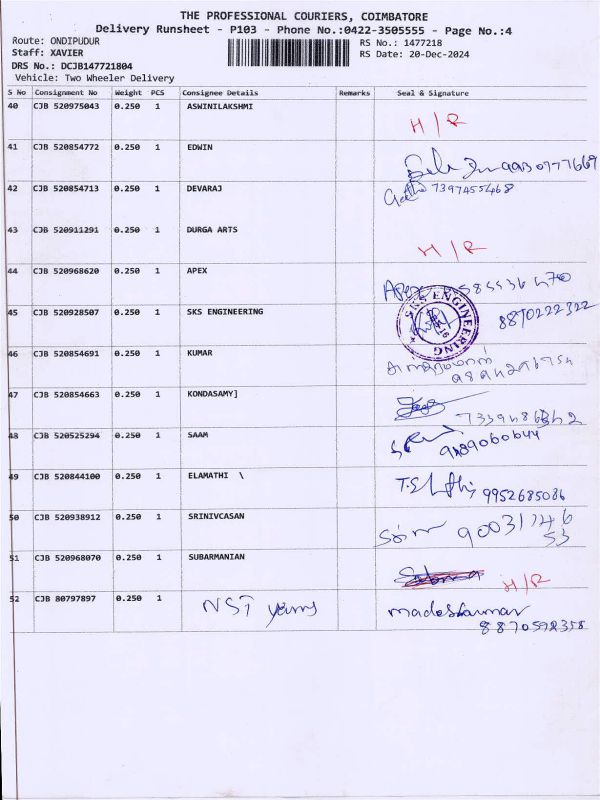 THE PROFESSIONAL COURIERS, COIMBATORE
Delivery Runsheet - P103 - Phone No.:0422-3505555 - Page No.:4
Route: ONDIPUDUR RS No.: 1477218
Staff: XAVIER RS Date: 20-Dec-2024
DRS No.: DCJB147721804
Vehicle: Two Wheeler Delivery
S No Consignment No Weight PCS Consignee Details Remarks Seal & Signature
40 CJB 520975043 0.250 1 ASWINILAKSHMI
H/R
41 CJB 520854772 0.250 1 EDWIN
9930977669
42 CJB 520854713 0.250 1 DEVARAJ
7397455468
43 CJB 520911291 0.250 1 DURGA ARTS
H/R
44 CJB 520968620 0.250 1 APEX
Apex
45 CJB 520928507 0.250 1 SKS ENGINEERING
SKS ENGINEERING
8870222322
46 CJB 520854691 0.250 1 KUMAR
47 CJB 520854663 0.250 1 KONDASAMY]
48 CJB 520525294 0.250 1 SAAM
49 CJB 520844100 0.250 1 ELAMATHI \
9952685086
50 CJB 520938912 0.250 1 SRINIVCASAN
90031746
53
51 CJB 520968070 0.250 1 SUBARMANIAN
H/R
52 CJB 80797897 0.250 1 NST yarns
8870592358